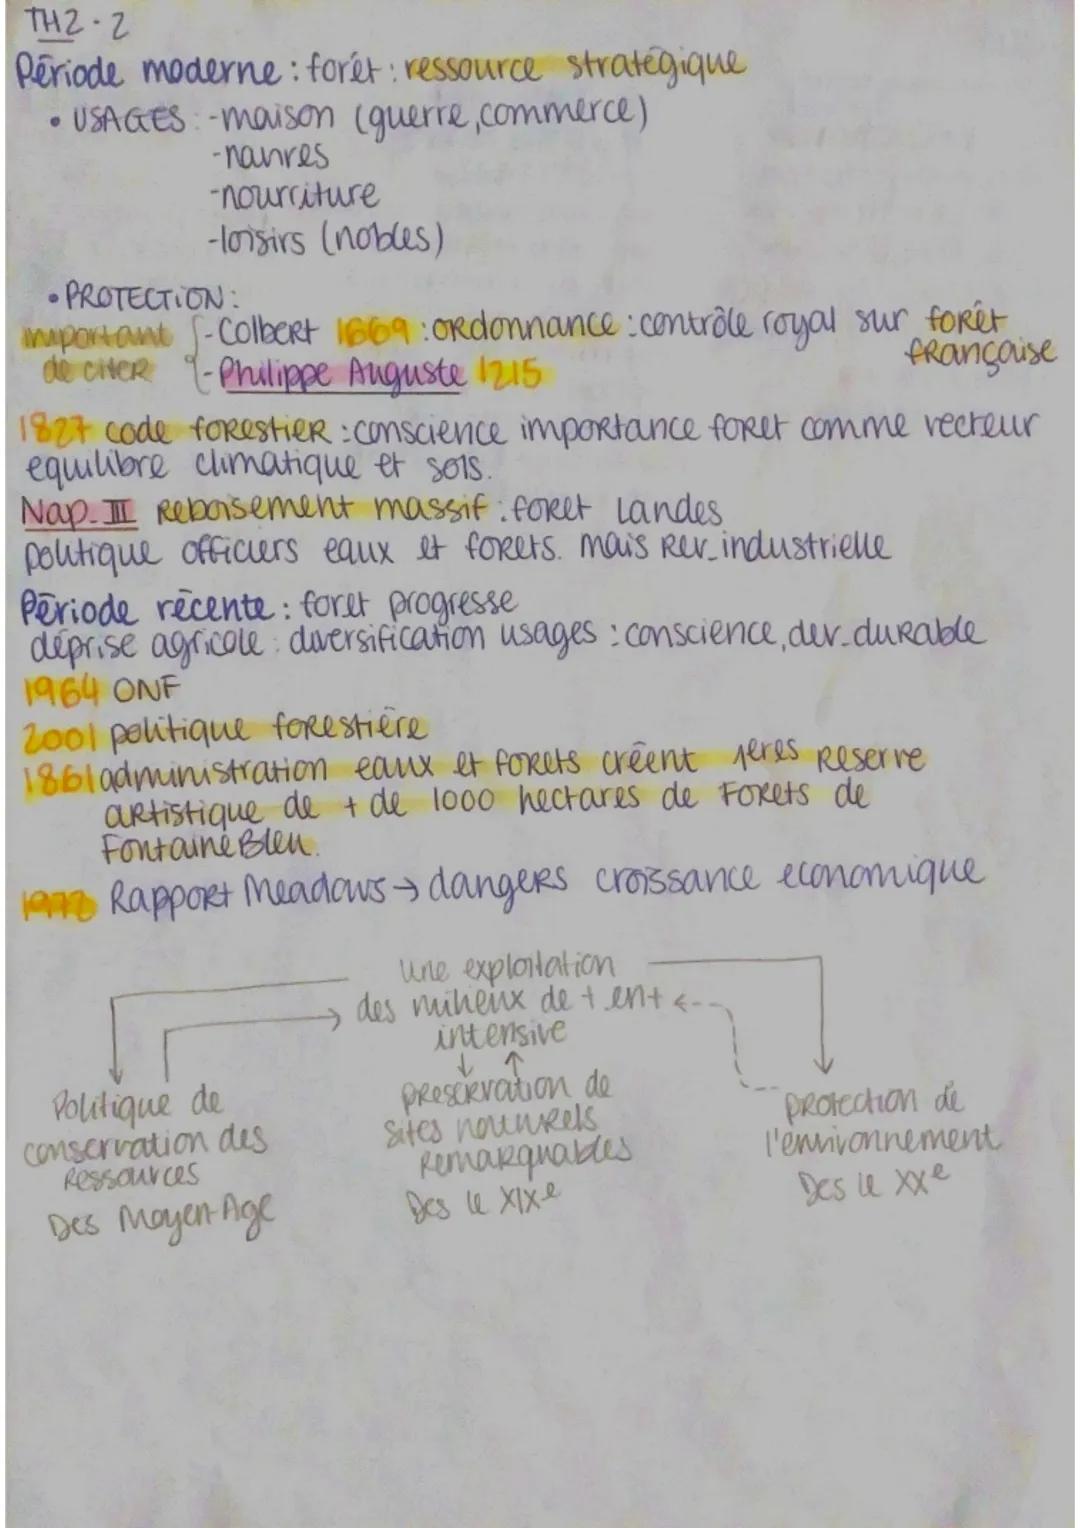 TH2.2
Période moderne : forêt : ressource stratégique
• USAGES : -maison (guerre, commerce)
-navires
-nourriture
-loisirs (nobles)
• PROTECTION :
important de citer
-Colbert 1669 : ordonnance : contrôle royal sur forêt française
-Philippe Auguste 1215
1827 code forestier : conscience importance foret comme vecteur
equilibre climatique et sols.
Nap. III Reboisement massif : foret Landes
politique officiers eaux et forets. mais Rev_industrielle
Période récente : foret progresse
déprise agricole : diversification usages : conscience, dev_durable
1964 ONF
2001 politique forestière
1861 administration eaux et forets créent 1eres Reserve
artistique de + de 1000 hectares de Forets de
FontaineBleu.
1972 Rapport Meadows → dangers croissance economique
une exploitation
des milieux de + en +
intensive
Politique de
conservation des
Ressources
Des Moyen-Age
preservation de
sites naturels
Remarquables
Des le XIXe
protection de
l'environnement
Des le XXe